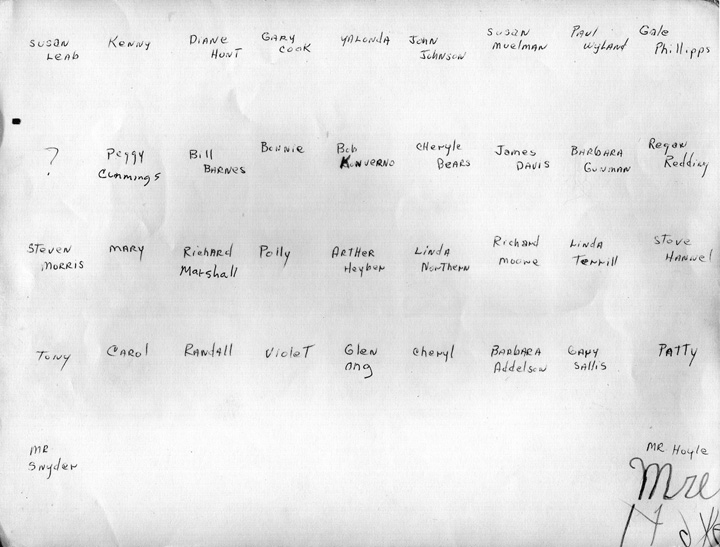 SUSAN LEAB
KENNY
DIANE HUNT
GARY COOK
YALONDA
JOHN JOHNSON
SUSAN MUELMAN
PAUL WYLAND
Gale Phillipps
?
Peggy Cummings
Bill BARNES
BONNIE
Bob KUNVERNO
CHeryle BEARS
James DAVIS
BARBARA GUNMAN
Regan Redding
STEVEN MORRIS
MARY
Richard Marshall
Polly
ARTHER Heyber
LINDA Northern
Richard moore
LINDA Terrill
STeve HANNEL
TONY
CAROL
RANDALL
VIOLET
Glen ong
Cheryl
BARBARA Addelson
GARY SALLIS
PATTY
MR Snyder
MR Hoyle